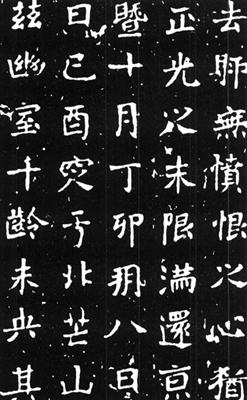 去師無憤恨之心猶
正光之末限滿還亰
暨十月丁卯朔八日
日己酉窆于北芒山
茲幽室千齡未央其